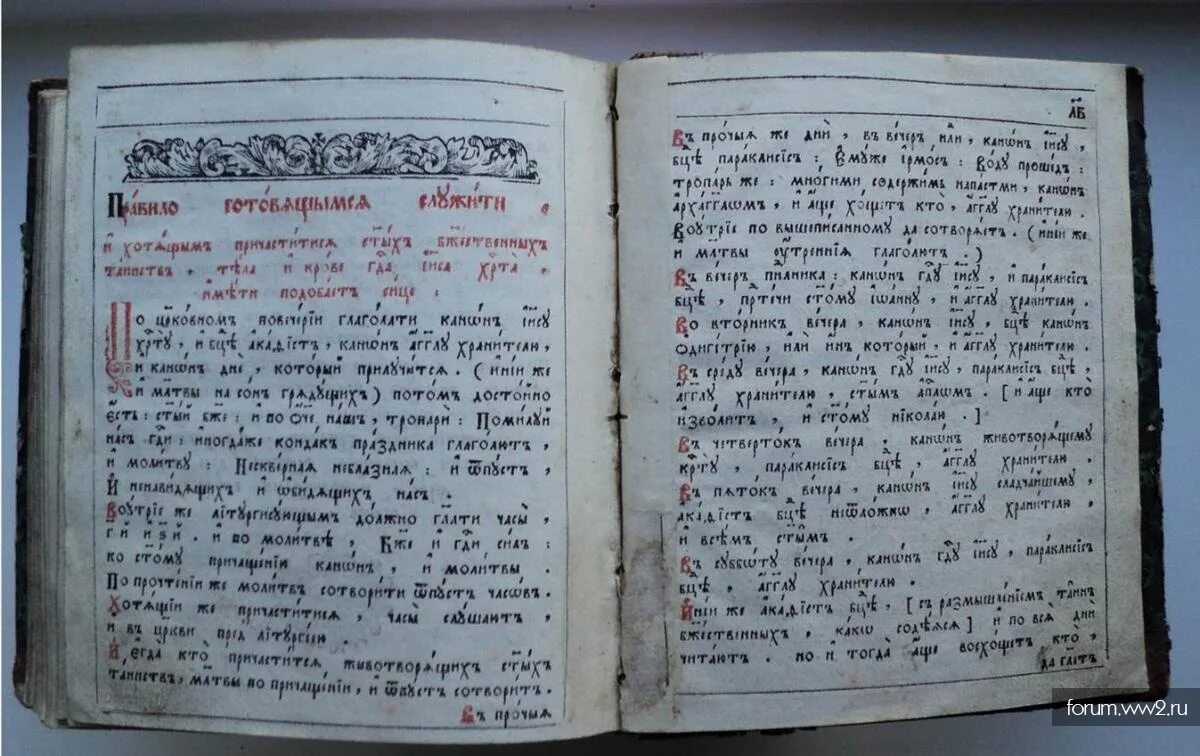 Пра́вило готовѧ́щымсѧ слꙋжи́ти
и҆ хотѧ́щымъ причасти́тисѧ ст҃ы́хъ бж҃е́ственныхъ
та́инствъ , тѣ́ла и҆ кро́ве гдⷭ҇а і҆и҃са хрⷭ҇та̀ ,
и҆мѣ́ти подоба́етъ си́це :
По цр҃ко́вномъ повече́рїи глаго́лати канѡ́нъ і҆и҃сꙋ
хрⷭ҇тꙋ̀ , и҆ бцⷣѣ а҆ка́ѳїстъ , канѡ́нъ а҆́гг҃лꙋ храни́телю ,
и҆ канѡ́нъ днѐ , кото́рый прилꙋчи́тсѧ . ( и҆ні́и же
и҆ мл҃твы на со́нъ грѧдꙋ́щихъ ) пото́мъ досто́йно
є҆́сть : ст҃ы́й бж҃е : и҆ по ѻ҆́ч҃е на́шъ , тропарѝ : Поми́лꙋй
на́съ гдⷭ҇и : иногда́же конда́къ пра́здника глаго́лютъ ,
и҆ моли́твꙋ : Нескве́рная небла́зная : и҆ ѿпꙋ́стъ ,
И҆ ненави́дѧщихъ и҆ ѡ҆би́дѧщихъ на́съ .
Воꙋ́трїе же літꙋргисꙋ́ющымъ до́лжно гл҃ати часы̀ ,
г҃ й и҆ ѕ҃ й . и҆ по моли́твѣ , Бж҃е и҆ гдⷭ҇и си́лъ :
ко ст҃о́мꙋ причаще́нїю канѡ́нъ , и҆ моли́твы .
По прочте́нїи же моли́твъ сотвори́ти ѿпꙋ́стъ часѡ́въ .
Хотѧ́щїи же причасти́тисѧ , часы̀ слꙋ́шаютъ ,
и҆ въ цр҃кви пред літꙋргі́ею .
И҆ є҆гда̀ кто̀ причасти́тсѧ , животворѧ́щихъ ст҃ы́хъ
та́инствъ , мл҃твы по причаще́нїи , и҆ ѿпꙋ́стъ сотвори́тъ .
Въ про́чыѧ
л҃в
Въ про́чыѧ же днѝ , въ ве́черъ и҆лѝ , канѡ́нъ і҆и҃сꙋ ,
бцⷣѣ пара́клисїсъ : Є҆мꙋ́же і҆рмо́съ : Во́дꙋ проше́дъ :
тропа́рь же : мно́гими содержи́мь напа́стми , канѡ́нъ
а҆рха́гг҃лѡмъ , и҆ а҆́ще хо́щетъ кто̀ , а҆́гг҃лꙋ храни́телю .
Воꙋ́трїе по вышепи́санномꙋ да сотворѧ́етъ . ( и҆ні́и же
и҆ мл҃твы ᲂу҆́треннїѧ глаго́лютъ . )
Въ ве́черъ пн҃лника : канѡ́нъ гдⷭ҇ꙋ і҆и҃сꙋ , и҆ пара́клисїсъ
бцⷣѣ , прⷣте́чи ст҃о́мꙋ і҆ѡа́ннꙋ , и҆ а҆́гг҃лꙋ храни́телю .
Во вто́рникъ ве́чера , канѡ́нъ і҆и҃сꙋ , бцⷣѣ канѡ́нъ
ѻ҆диги́трїю , и҆лѝ и҆́нъ кото́рый , и҆ а҆́гг҃лꙋ храни́телю .
Въ сре́дꙋ ве́чера , канѡ́нъ гдⷭ҇ꙋ і҆и҃сꙋ , пара́клисїсъ бцⷣѣ ,
а҆́гг҃лꙋ храни́телю , ст҃ы́мъ а҆пⷭ҇лѡмъ . [ и҆ а҆́ще кто̀
и҆зво́литъ , и҆ ст҃о́мꙋ ніко́лаю . ]
Въ четверто́къ ве́чера , канѡ́нъ животворѧ́щемꙋ
крⷭ҇тꙋ̀ , пара́клисїсъ бцⷣѣ , а҆́гг҃лꙋ храни́телю .
Въ пѧто́къ ве́чера , канѡ́нъ і҆и҃сꙋ сладча́йшемꙋ ,
а҆ка́ѳїстъ бцⷣѣ неѿло́жнѡ , а҆́гг҃лꙋ храни́телю ,
и҆ всѣ́мъ ст҃ы́мъ .
Въ сꙋббѡ́тꙋ ве́чера , канѡ́нъ гдⷭ҇ꙋ і҆и҃сꙋ , пара́клисїсъ
бцⷣѣ , а҆́гг҃лꙋ храни́телю .
И҆ні́и же а҆ка́ѳїстъ бцⷣѣ , [ съ размышле́нїемъ та̑инъ
бж҃е́ственныхъ , ка́кѡ содѣ́ѧсѧ ] и҆ по всѧ̀ днѝ
чита́ютъ . но и҆ тогда̀ а҆́ще восхо́щетъ кто̀ ,
да гл҃етъ
forum.ww2.ru